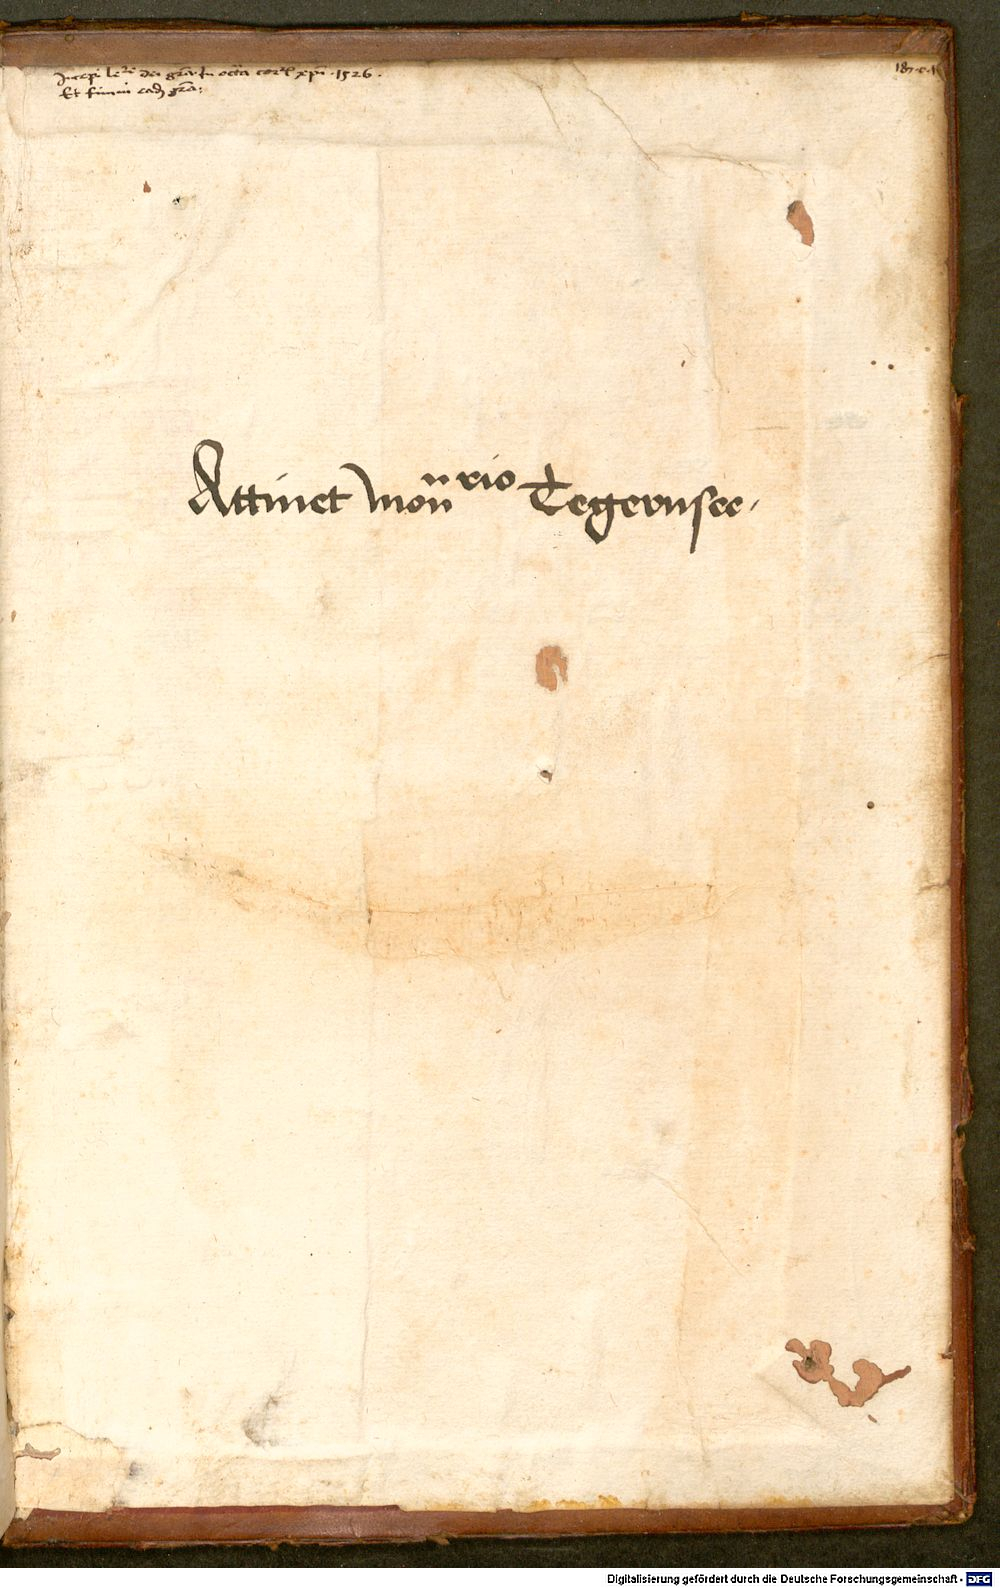 Incepi le͛e dei gr̄a in octa͛ cor͛l xp̄i · 1526 ·
Et finivi ead gr̄a:
Attinet mon̄rio Tegernsee.
Digitalisierung gefördert durch die Deutsche Forschungsgemeinschaft - DFG